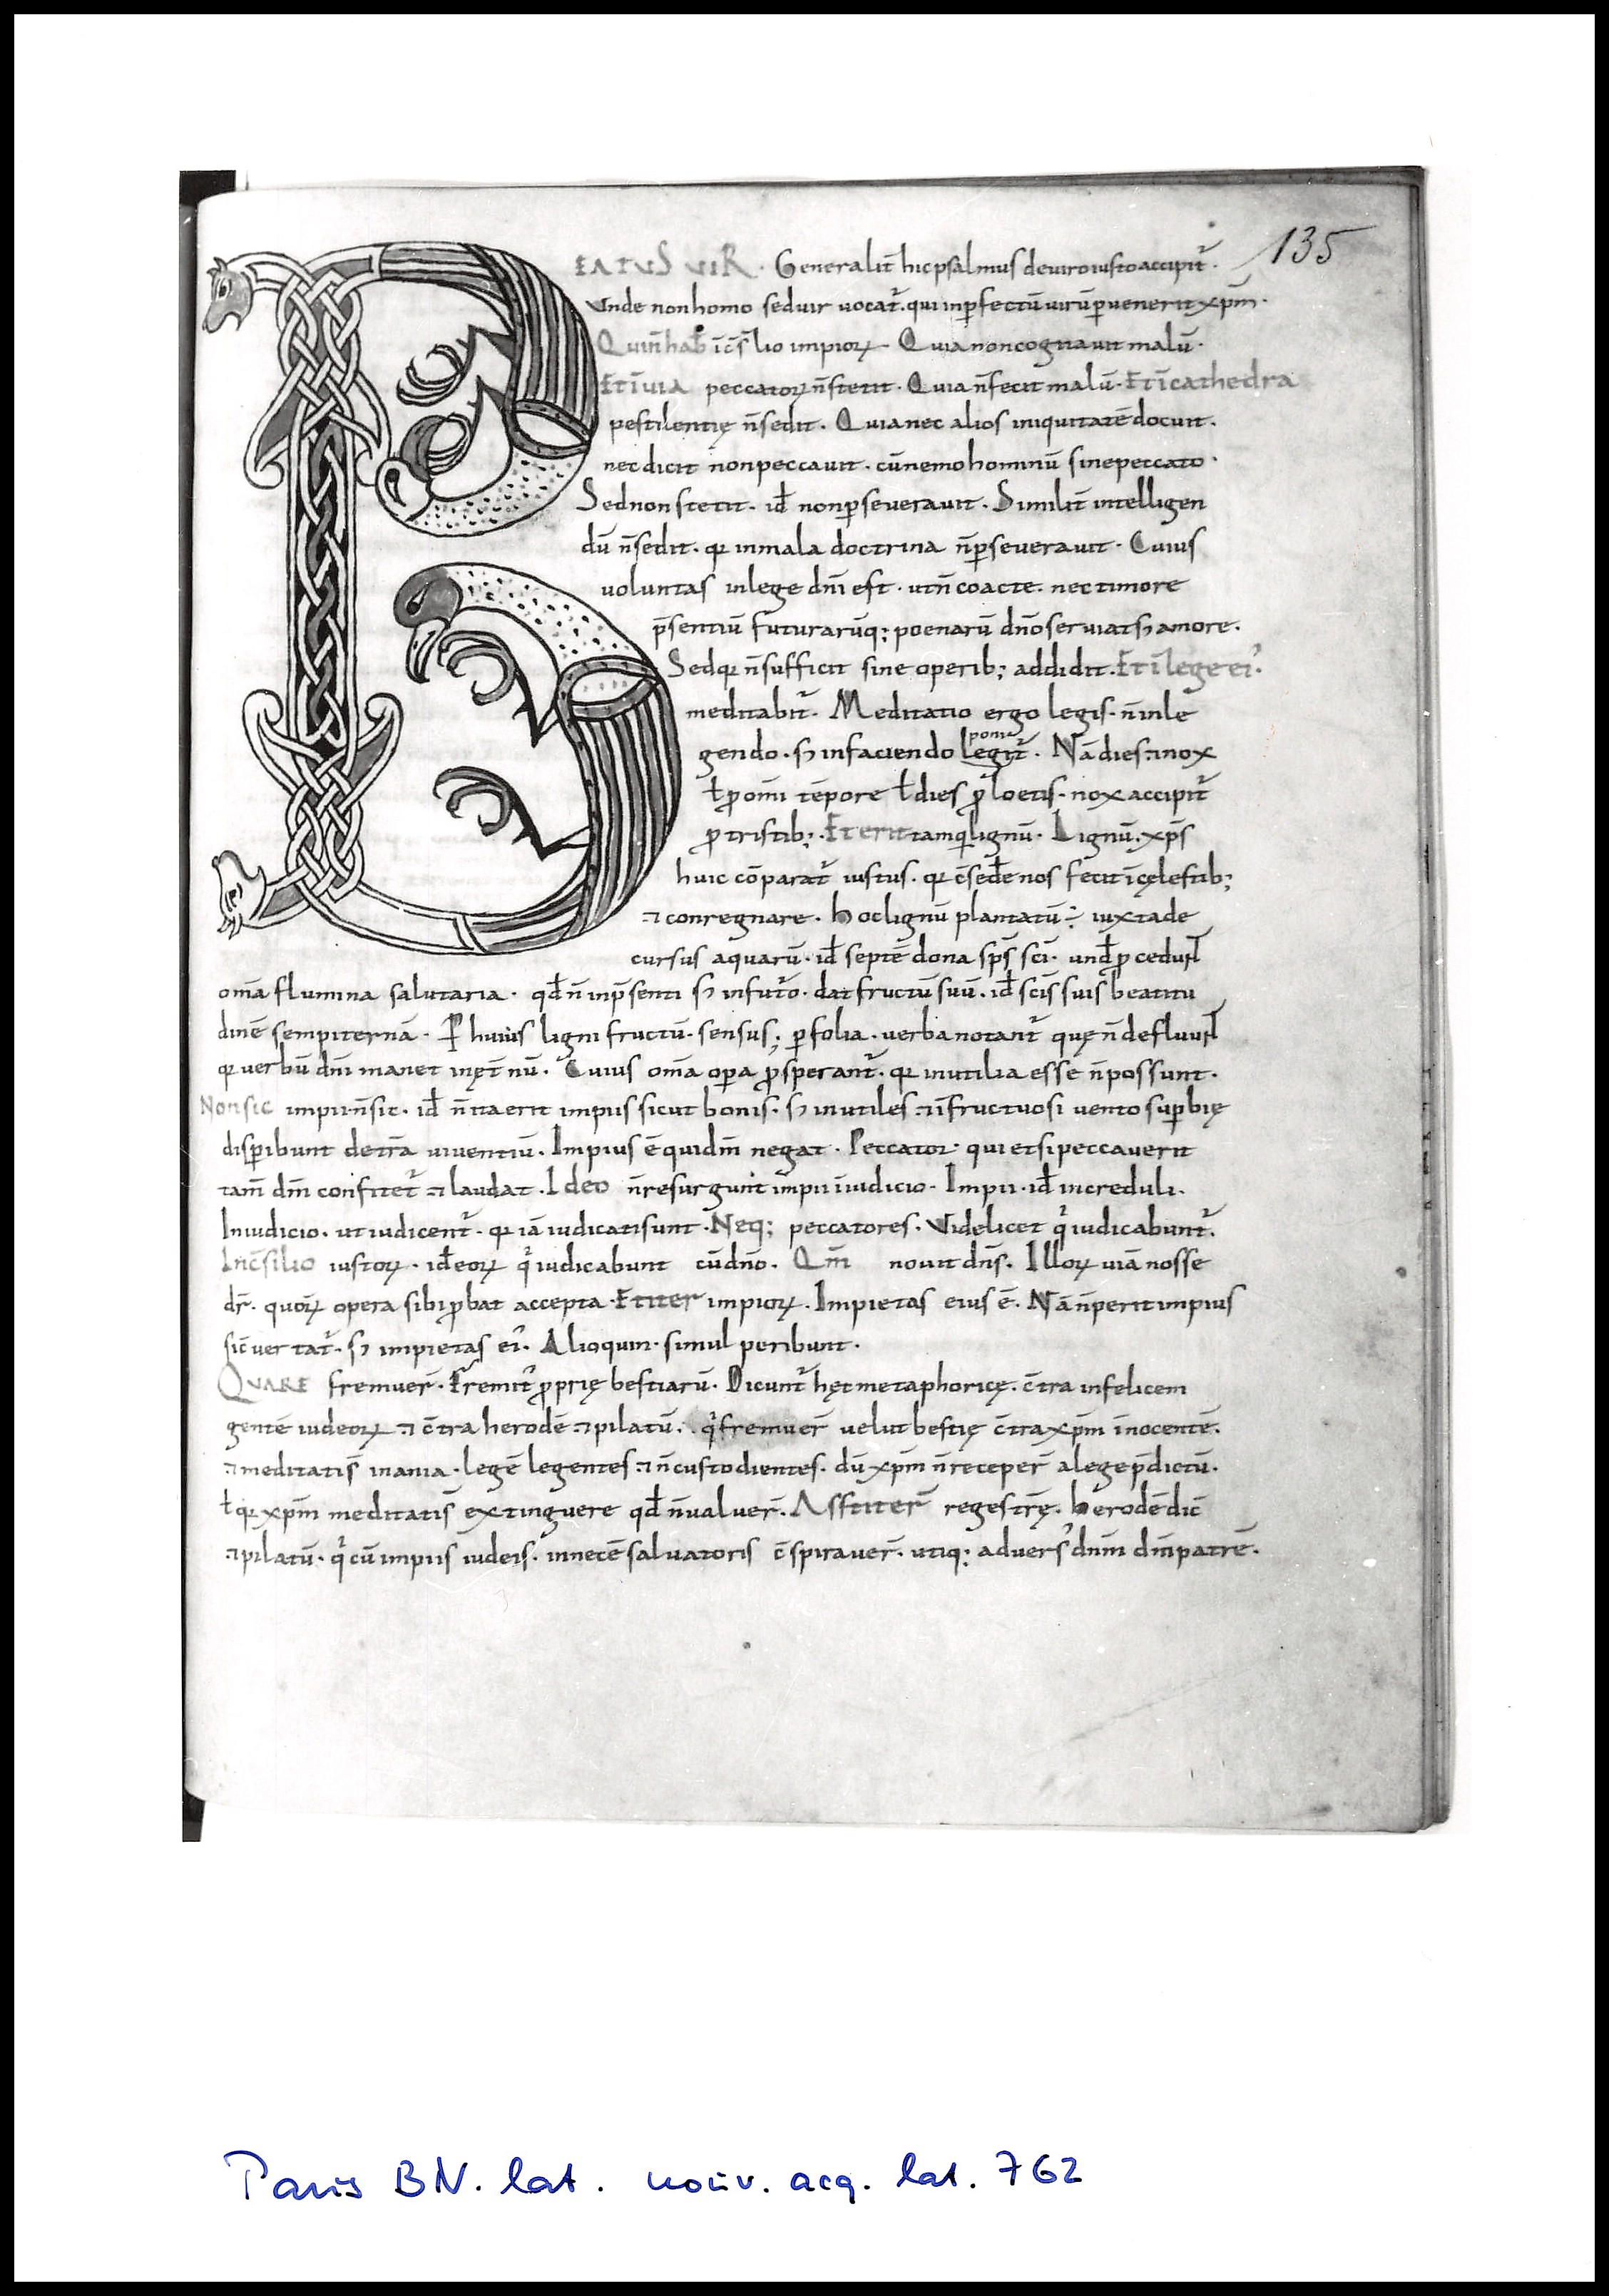 135
EATUS VIR. Generalit̄ hic psalmus de viro iusto accipit᷑.
Vnde non homo sed vir vocat᷑. qui in ꝑfectū virū ꝑvenerit xp̄m.
Qui n̄ hab̄ ī c̄s̄lio impioꝝ. Quia non cogitavit malū.
Et ī via peccatoꝝ n̄ stetit. Quia n̄ fecit malū. Et ī cathedra
pestilentię n̄ sedit. Quia nec alios iniquitatē docuit.
nec dicit non peccavit. cū nemo hominū sine peccato.
Sed non stetit. id̄ non ꝑseveravit. Similit̄ intelligen
dū n̄ sedit. qr in mala doctrina n̄ ꝑseveravit. Cuius
voluntas in lege dn̄i est. ut n̄ coacte. nec timore
p̄sentiū futurarūq; poenarū dn̄o serviat sꝫ amore.
Sed qr n̄ sufficit sine operib; addidit. Et ī lege ei᷒.
meditabit᷑. Meditatio ergo legis. n̄ in le
poni
gendo. sꝫ in faciendo legit᷑. Nā dies ⁊ nox
ł ꝓ om̄i tēpore ł dies ꝓ loetis. nox accipit᷑
ꝓ tristib;. Et erit tamqͥ lignū. Lignū. xp̄s
huic cōparat᷑ iustus. qr c̄sedē nos fecit ī cęlestib;
⁊ conregnare. hoc lignū plantatū ÷ iuxta de
cursus aquarū. id̄ septē dona sp̄s sc̄i. und̄ ꝓcedunt̄
om̄a flumina salutaria. qd̄ n̄ in p̄senti sꝫ in fut᷑o. dat fructū suū. id̄ sc̄is suis beatitu
dinē sempiternā. P huius ligni fructū. sensus; ꝑ folia. verba notant᷑ quę n̄ defluunt̄
qr verbū dn̄i manet in ęt̄nū. Cuius om̄a oꝑa ꝓsperant᷑. qr inutilia esse n̄ possunt.
Non sic impii n̄ sic. id̄ n̄ ita erit impiis sicut bonis. sꝫ inutiles ⁊ īfructuosi vento suꝑbię
disꝑibunt de tr̄a viventiū. Impius ē qui dm̄ negat. Peccator qui etsi peccaverit
tam̄ dm̄ confitet᷑ ⁊ laudat. Ideo n̄ resurgunt impii ī iudicio. Impii. id̄ increduli.
In iudicio. ut iudicent᷑. qr iā iudicati sunt. Neq; peccatores. Videlicet qͥ iudicabunt᷑.
In c̄silio iustoꝝ. id̄ eoꝝ qͥ iudicabunt cū dn̄o. Qm̄ novit dn̄s. Illoꝝ viā nosse
dr̄. quoꝝ opera sibi ꝓbat accepta. Et iter impioꝝ. Impietas eius ē. Nā n̄ perit impius
si c̄vertat᷑. sꝫ impietas ei᷒. Alioquin. simul peribunt.
QVARE fremuer̄. Fremit᷒ ꝓprię bestiarū. Dicunt᷑ hęc metaphoricę. c̄tra infelicem
gentē iudeoꝝ ⁊ c̄tra herodē ⁊ pilatū. qͥ fremuer̄ velut bestię c̄tra xp̄m īnocentē.
⁊ meditatis̄ inania. legē legentes ⁊ n̄ custodientes. dū xp̄m n̄ receper̄ a lege p̄dictū.
ł qr xp̄m meditatis̄ extinguere qd̄ n̄ valuer̄. Asstiter̄ reges tr̄ę. herodē dic̄
⁊ pilatū. qͥ cū impiis iudeis. in necē salvatoris c̄spiraver̄. utiq; advers᷒ dn̄m dm̄ patrē.
Paris BN. lat. nouv. acq. lat. 762